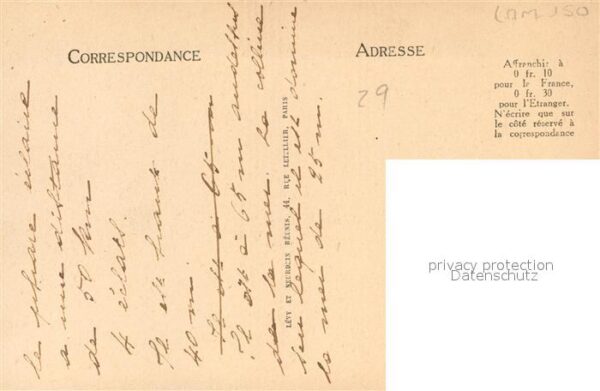 CORRESPONDANCE
ADRESSE
LAM 150
29
Affranchir à
0 fr. 10
pour la France,
0 fr. 30
pour l'Etranger.
N'écrire que sur
le côté réservé à
la correspondance
LÉVY ET NEURDEIN RÉUNIS, 44, RUE LETELLIER, PARIS
le phare éclaire
a une distance
de 50 km
4 éclats.
Il est haut de
40 m.
Il est à 65 m
Il est à 65 m au dessus
de la mer. La colline
sur lequel il est domine
la mer de 25 m.
privacy protection
Datenschutz